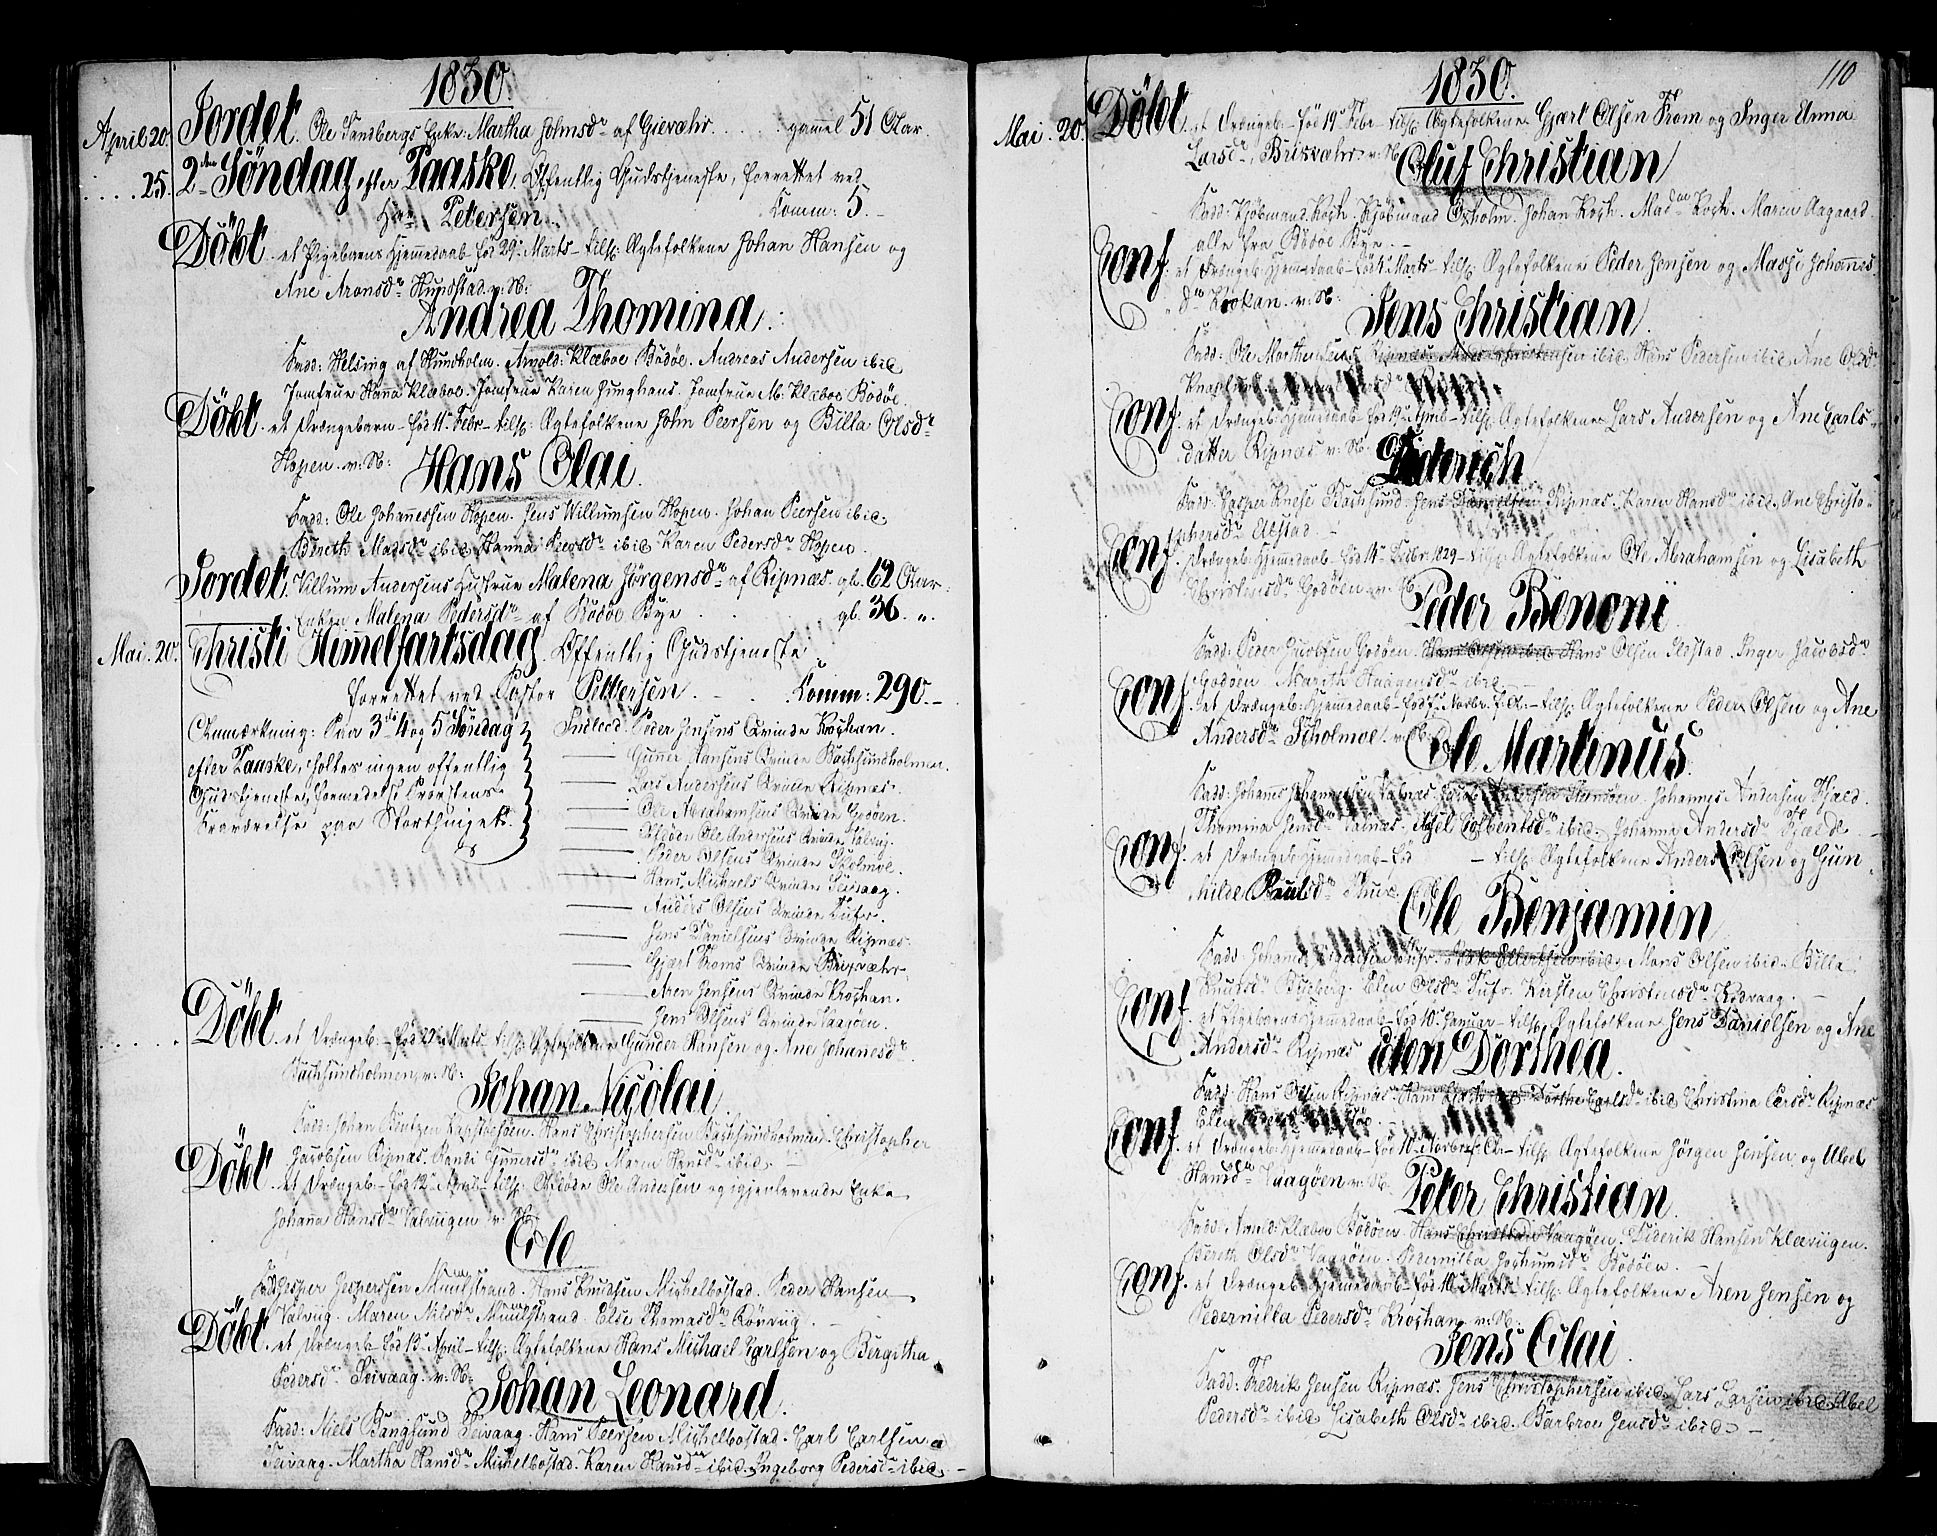 1830.
April 20. Jordet. Ole Sandbergs Enke Martha Holmsdr af Gievæhr . . . . . gammel 51 Aar.
. . . . 25. 2den Søndag efter Paaske, Offentlig Gudstjeneste, forrettet ved
Hr Petersen. Comm: 5.
Döbt et Pigebarn Hjemmedaab - fød 29. Marts - tilh: Ægtefolkene Johan Hansen og
Ane Aronsdr Hundstad. v: N:
Andrea Thomina.
Fadd: Helsing af Hundholm. Arnold Klæboe Bodöe. Andreas Andersen ibid
Jomfrue Hanna Klæboe. Jomfrue Karen Junghans. Jomfrue M. Klæboe Bodöe.
Döbt et Drængebarn - fød 11 Febr - tilh: Ægtefolkene John Peersen og Billa Olsdr
Hopen. v: N:
Hans Olai.
Fadd: Ole Johannessen Hopen. Jens Willumsen Hopen. Johan Peersen ibid
Bereth Madsdr ibid Hanna Peersdr ibid Karen Pedersdr Hopen.
Jordet. Villum Andersens Hustrue Malena Jörgensdr af Ripnæs. gl. 62 Aar.
Enken Malena Pedersdr af Bodöe Bye . . . gl. 36 "
Mai. 20. Christi Himmelfartsdag Offentlig Gudstjeneste
forrettet ved Pastor Pettersen. Comm: 290.
Anmærkning: Paa 3die 4 og 5 Söndag
efter Paaske, holtes ingen offentlig
Gudstjeneste, formedelst Præstens
Fraværelse paa Storthinget.
Indled: Peder Jensens Qvinde Kroghan.
Guner Hansens Qvinde Bachsundholmen.
Lars Andersens Qvinde Ripnæs.
Ole Abrahamsens Qvinde Godöen.
Afdöde Ole Andersens Qvinde Valvig.
Peder Olsens Qvinde Skolmoe.
Hans Michaels Qvinde Seivaag.
Anders Olsens Qvinde Tufve.
Jens Danielsens Qvinde Ripnæs.
Gjært Froms Qvinde Brixvæhr
Aren Jensens Qvinde Kroghan.
Jens Olsens Qvinde Vaagöen.
Döbt et Drængeb: - fød Marts tilh: Ægtefolkene Gunder Hansen og Ane Johanesdr
Bachsundholmen, v: N:
Johan Nicolai
Fadd: Johan Bentzen. Hans Christophersen Bachsundholmen. Christopher
Jacobsen Ripnæs. Gunnersdr ibid Maren Hansdr ibid.
Döbt et Drængeb: - fød 12 - tilh: Afdöde Ole Andersen og igjenlevende Enke
Johanna Hansdr Valvigen v: N:
Ole
Fadd: Jesper Jespersen Mundstrand. Hans Knudsen Michelbostad. Peder Hansen
Valvig. Maren Nilsdr Mundstrand Else Thomasdr Rörvig.
Döbt et Drængeb: fød 13 April - tilh: Ægtefolkene Hans Michael Carlsen og Bergitha
Pedersdr Seivaag. v: N:
Johan Leonard.
Fadd: Niels Bangsund Seivaag. Hans Peersen Michelbostad. Carl Carlsen
Seivaag. Martha Hansdr Michelbostad. Karen Hansdr ibid. Ingeborg Pedersdr ibid.
1830.
110
Mai. 20. Döbt et Drængeb: fød 19 Febr - tilh: Ægtefolkene Gjært Olsen From og Inger Anna
Larsdr, Brixvæhr. v: N:
Oluf Christian
Fadd: Kjöbmand Koch. Kjöbmand Oxholm. Johan Koch. Madm Koch. Maren Aagaard
alle fra Bodöe Bye.
Conf. et Drængeb: Hjemmedaab - fød Marts - tilh: Ægtefolkene Peder Jensen og Masse Johannes
dr Krokan. v: N:
Jens Christian.
Fadd: Ole Marthe ibid. Hans Pedersen ibid Ane Olsdr
Conf. et Drængeb: Hjemmedaab - fød 19 April - tilh: Ægtefolkene Lars Andersen og Ane Carls
datter Ripnæs v: N:
Diderich
Fadd: Jasper Knese Bachsund. Jens Danielsen Ripnæs. Karen Hansdr ibid. Ane Christo-
phersdr Alstad.
Conf. et Drængeb: Hjemmedaab - fød 14. Decbr. 1829 - tilh: Ægtefolkene Ole Abrahamsen og Lisabeth
Christensdr Godöen v: N:
Peder Benoni
Fadd: Peder Jacobsen Godöen. Hans Olsen ibid Hans Olsen Ilstad. Inger Jacobsdr
Godöen. Marith ibid.
Conf. et Drængeb: Hjemmedaab - fød Novbr. f. A. - tilh: Ægtefolkene Peder Olsen og Ane
Andersdr Skolmoe. v: N:
Ole Martinus.
Fadd: Johanes Johannesen Valnæs. Johannes Andersen Kjæld.
Thomina Jensdr Valnæs. Axel ibid. Johanna Andersdr Kjælde
Conf. et Drængeb: Hjemmedaab - fød - tilh: Ægtefolkene Anders Olsen og Gun
hilde Poulsdr Thue
Ole Benjamin
Fadd: Johannes ibid, Mons Olsen ibid. Billa
Knudsdr. Elen Olsdr Tufve. Kersten Christensdr Kodvaag.
Conf. et Pigebarn Hjemmedaab - fød 10 Januar - tilh: Ægtefolkene Jens Danielsen og Ane
Andersdr Ripnæs
Elen Dorthea.
Fadd: Hans Olsen Ripnæs. Hans Dorthe Carlsdr ibid Christina Larsdr Ripnæs
Elen
Conf. et Drængeb: Hjemmedaab - fød 10 Novbr f. A. - tilh: Ægtefolkene Jörgen Jensen og Abel
Hansdr Vaagöen v: N:
Peter Christian
Fadd: Arnt Klæboe Bodöen. Hans Christian Vaagöen. Diderik Hansen Kleevigen.
Bereth Olsdr Vaagöen. Pedernilla Jochumsdr Bodöen.
Conf. et Drængeb: Hjemmedaab - fød 10 Marts - tilh: Ægtefolkene Aren Jensen og
Pedernilla Pedersdr Kroghan. v: N:
Jens Olai.
Fadd: Fredrik Jensen Ripnæs. Jens Christophersen ibid. Lars Larsen ibid. Abel
Pedersdr ibid Lisabeth Olsdr ibid. Barbroe Jensdr ibid.